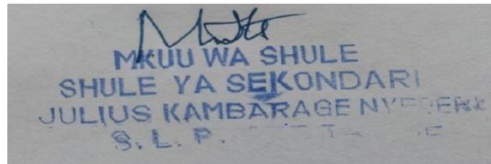 MKUU WA SHULE
SHULE YA SEKONDARI
JULIUS KAMBARAGE
S. L. P.